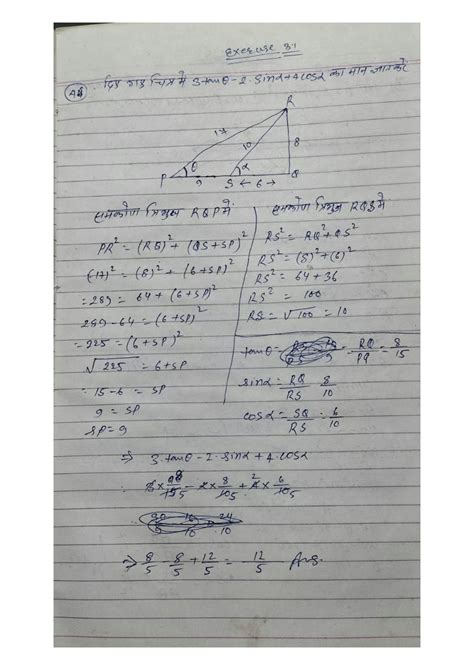 Exercise 8.1
दिए गए चित्र में 3 tanθ - 2. sinα + 4 cosα का मान ज्ञात करें
R
17
10
8
θ
α
P
9
S
← 6 →
Q
समकोण त्रिभुज RQP में
PR² = (RQ)² + (QS+SP)²
(17)² = (8)² + (6+SP)²
= 289 = 64 + (6+SP)²
289 - 64 = (6+SP)²
= 225 = (6+SP)²
√225 = 6+SP
= 15-6 = SP
9 = SP
SP = 9
समकोण त्रिभुज RQS में
RS² = RQ² + QS²
RS² = (8)² + (6)²
RS² = 64 + 36
RS² = 100
RS = √100 = 10
tanθ = RQ/PQ = 8/15
sinα = RQ/RS 8/10
cosα = SQ/RS = 6/10
⇒ 3. tanθ - 2. sinα + 4. cosα
⇒ 8/5 - 8/5 + 12/5 = 12/5 Ans.